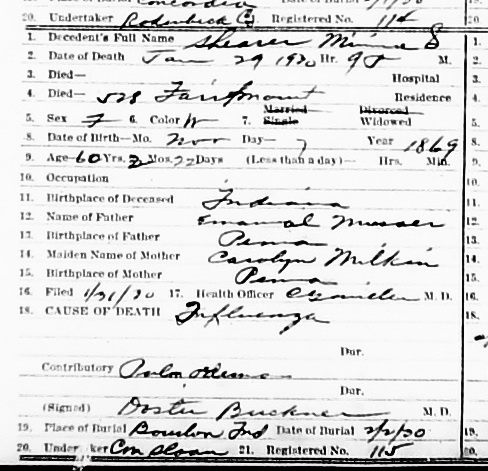 Concordia
20. Undertaker Roderbeck C Registered No. 114
1. Decedent's Full Name Shearer Minnie S
2. Date of Death Jan 29 1920 Hr. 9 M.
3. Died— Hospital
4. Died— 528 Fairmount Residence
5. Sex F 6. Color W 7. Married Single Divorced Widowed
8. Date of Birth—Mo. Nov Day— 7 Year 1869
9. Age—60 Yrs. 2 Mos. 22 Days (Less than a day)— Hrs. Min.
10. Occupation
11. Birthplace of Deceased Indiana
12. Name of Father Emanual Musser
13. Birthplace of Father Penna
14. Maiden Name of Mother Carolyn Milkin
15. Birthplace of Mother Penna
16. Filed 1/31/30 17. Health Officer M. D.
18. CAUSE OF DEATH Influenza
Dur.
Contributory Pulm Edema
Dur.
(Signed) Doster Buckner M. D.
19. Place of Burial Bourbon Ind Date of Burial 2/2/30
20. Undertaker Sloan 21. Registered No. 115